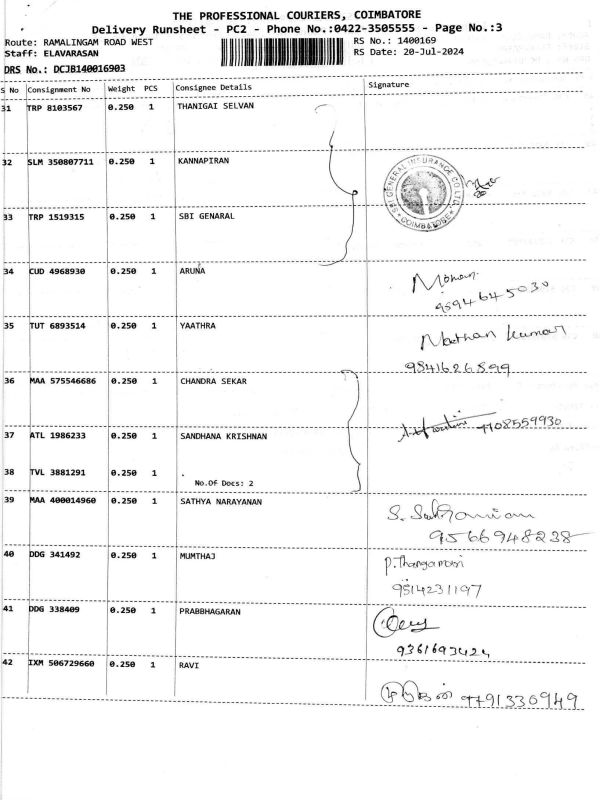 THE PROFESSIONAL COURIERS, COIMBATORE
Delivery Runsheet - PC2 - Phone No.:0422-3505555 - Page No.:3
Route: RAMALINGAM ROAD WEST RS No.: 1400169
Staff: ELAVARASAN RS Date: 20-Jul-2024
DRS No.: DCJB140016903
S No Consignment No Weight PCS Consignee Details Signature
31 TRP 8103567 0.250 1 THANIGAI SELVAN
32 SLM 350807711 0.250 1 KANNAPIRAN
SBI GENERAL INSURANCE CO LTD. COIMBATORE
33 TRP 1519315 0.250 1 SBI GENARAL
34 CUD 4968930 0.250 1 ARUNA
Mohan
9594645030
35 TUT 6893514 0.250 1 YAATHRA
Nathan Kumar
9841626899
36 MAA 575546686 0.250 1 CHANDRA SEKAR
7708559930
37 ATL 1986233 0.250 1 SANDHANA KRISHNAN
38 TVL 3881291 0.250 1 .
No.Of Docs: 2
39 MAA 400014960 0.250 1 SATHYA NARAYANAN
S.
9566948238
40 DDG 341492 0.250 1 MUMTHAJ
P.Thangamani
9514231197
41 DDG 338409 0.250 1 PRABBHAGARAN
9361693424
42 IXM 506729660 0.250 1 RAVI
முருகன் 9791330949